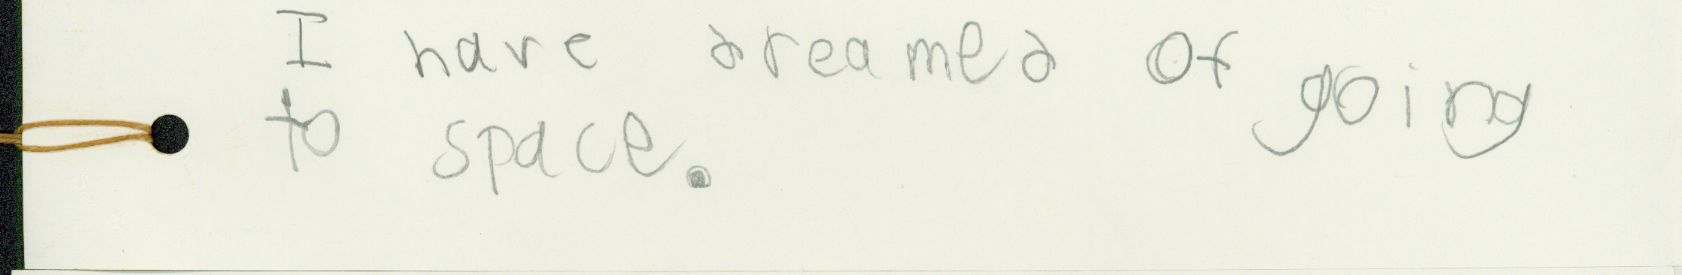 I have dreamed of going
to space.